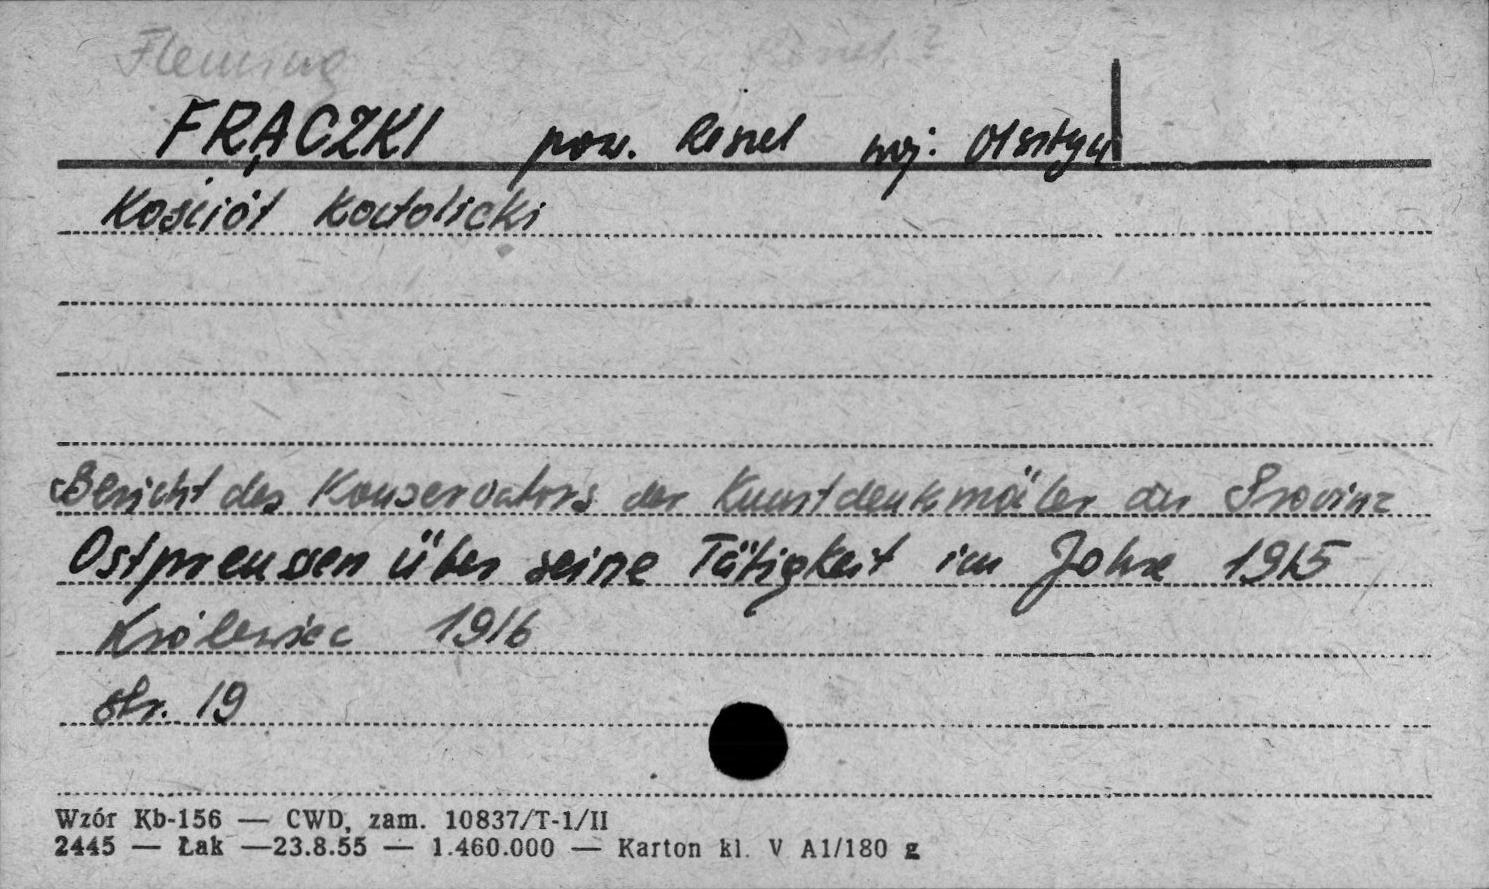 Fleming Reszel ?
FRĄCZKI pow. Reszel woj. Olsztyn
Kościół Katolicki
Bericht des Konservators der Kunstdenkmäler der Provinz
Ostpreussen über seine Tätigkeit im Jahre 1915
Królewiec 1916
str. 19
Wzór Kb-156 — CWD, zam. 10837/T-1/II
2445 — Łak —23.8.55 — 1.460.000 — Karton kl. V A1/180 g